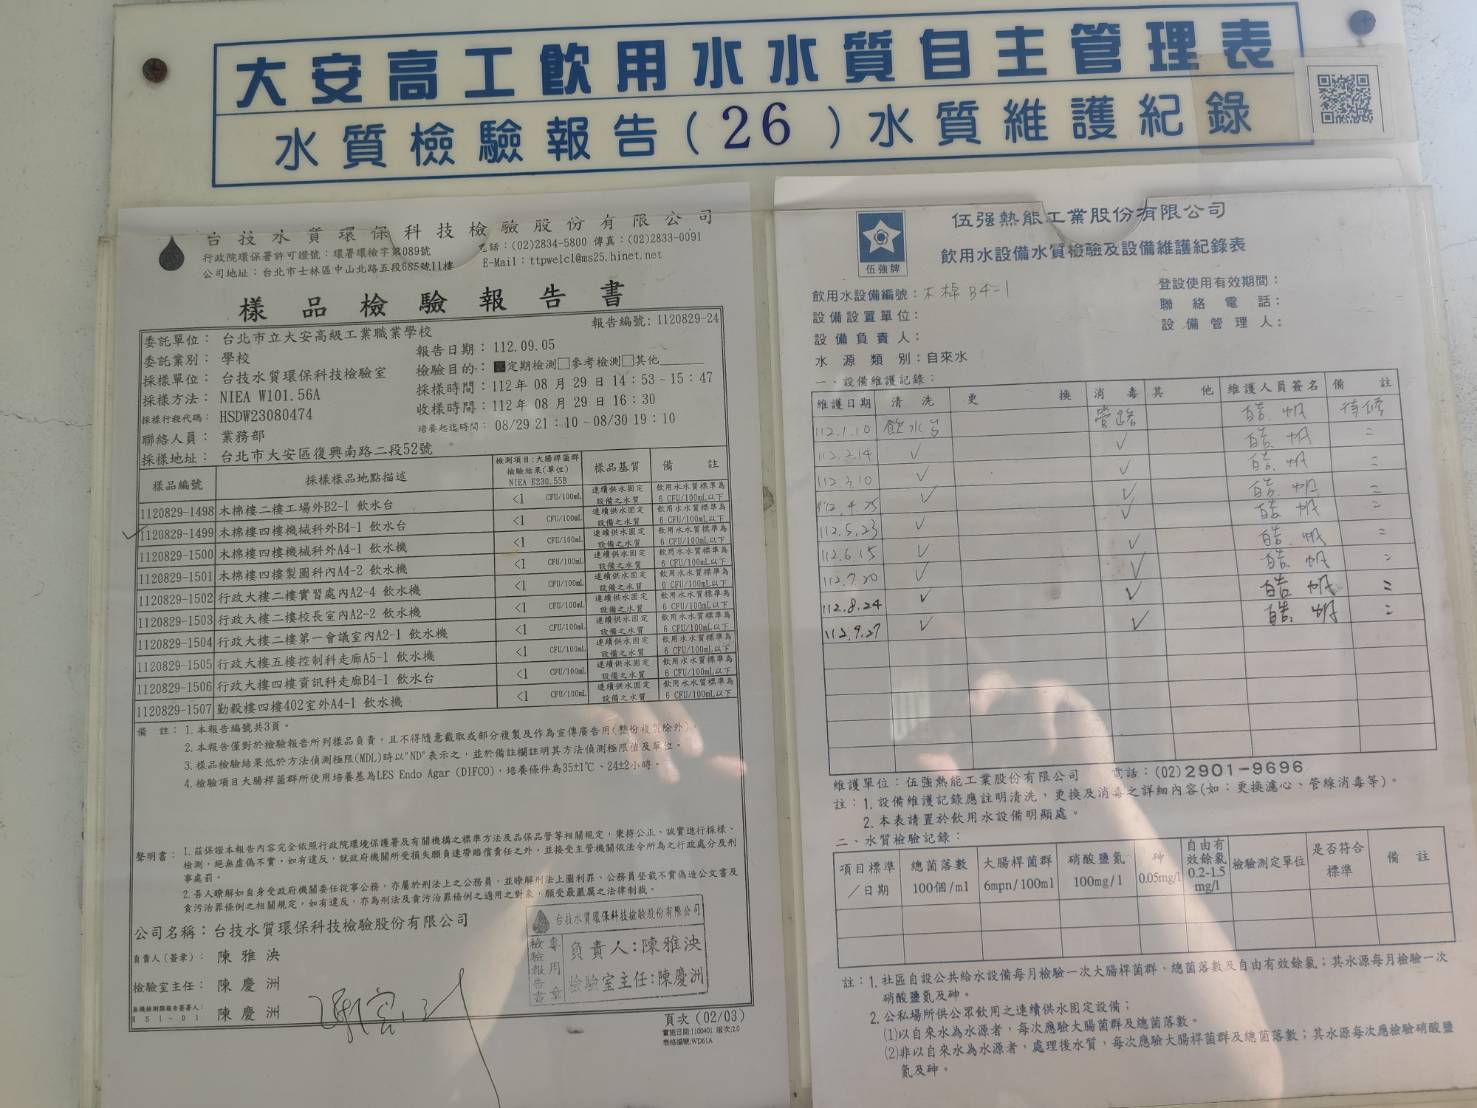 大安高工飲用水水質自主管理表
水質檢驗報告(26)水質維護紀錄
台技水質環保科技檢驗股份有限公司
行政院環保署許可證號：環署環檢字第089號
電話：(02)2834-5800 傳真：(02)2833-0091
公司地址：台北市士林區中山北路五段685號11樓
E-Mail：ttpwelcl@ms25.hinet.net
樣品檢驗報告書
報告編號：1120829-24
委託單位：台北市立大安高級工業職業學校
委託業別：學校
報告日期：112.09.05
採樣單位：台技水質環保科技檢驗室
檢驗目的：■定期檢測□參考檢測□其他
採樣方法：NIEA W101.56A
採樣時間：112年 08 月 29 日 14：53~15：47
採樣行程代碼：HSDW23080474
收樣時間：112年 08 月 29 日 16：30
聯絡人員：業務部
培養起迄時間：08/29 21：10~08/30 19：10
採樣地址：台北市大安區復興南路二段52號
樣品編號 採樣樣品地點描述 檢測項目：大腸桿菌群 檢驗結果(單位) NIEA E230.55B 樣品基質 備註
1120829-1498 木棉樓二樓工場外B2-1 飲水台 <1 CFU/100mL 連續供水固定設備之水質 飲用水水質標準為6 CFU/100mL以下
1120829-1499 木棉樓四樓機械科外B4-1 飲水台 <1 CFU/100mL 連續供水固定設備之水質 飲用水水質標準為6 CFU/100mL以下
1120829-1500 木棉樓四樓機械科外A4-1 飲水機 <1 CFU/100mL 連續供水固定設備之水質 飲用水水質標準為6 CFU/100mL以下
1120829-1501 木棉樓四樓製圖科內A4-2 飲水機 <1 CFU/100mL 連續供水固定設備之水質 飲用水水質標準為6 CFU/100mL以下
1120829-1502 行政大樓二樓實習處內A2-4 飲水機 <1 CFU/100mL 連續供水固定設備之水質 飲用水水質標準為6 CFU/100mL以下
1120829-1503 行政大樓二樓校長室內A2-2 飲水機 <1 CFU/100mL 連續供水固定設備之水質 飲用水水質標準為6 CFU/100mL以下
1120829-1504 行政大樓二樓第一會議室內A2-1 飲水機 <1 CFU/100mL 連續供水固定設備之水質 飲用水水質標準為6 CFU/100mL以下
1120829-1505 行政大樓五樓控制科走廊A5-1 飲水機 <1 CFU/100mL 連續供水固定設備之水質 飲用水水質標準為6 CFU/100mL以下
1120829-1506 行政大樓四樓資訊科走廊B4-1 飲水台 <1 CFU/100mL 連續供水固定設備之水質 飲用水水質標準為6 CFU/100mL以下
1120829-1507 勤毅樓四樓402室外A4-1 飲水機 <1 CFU/100mL 連續供水固定設備之水質 飲用水水質標準為6 CFU/100mL以下
備註：1.本報告編號共3頁。
2.本報告僅對於檢驗報告所列樣品負責，且不得隨意截取或部分複製及作為宣傳廣告用(整份複製除外)。
3.樣品檢驗結果低於方法偵測極限(MDL)時以"ND"表示之，並於備註欄註明其方法偵測極限值及單位。
4.檢驗項目大腸桿菌群所使用培養基為LES Endo Agar (DIFCO)，培養條件為35±1℃、24±2小時。
聲明書：1.茲保證本報告內容完全依照行政院環境保護署及有關機構之標準方法及品保品管等相關規定，秉持公正、誠實進行採樣、
檢測，絕無虛偽不實，如有違反，就政府機關所受損失願負連帶賠償責任之外，並接受主管機關依法令所為之行政處分及刑
事處罰。
2.吾人瞭解如自身受政府機關委任從事公務，亦屬於刑法上之公務員，並瞭解刑法上圖利罪、公務員登載不實偽造公文書及
貪污治罪條例之相關規定，如有違反，亦為刑法及貪污治罪條例之適用之對象，願受最嚴厲之法律制裁。
公司名稱：台技水質環保科技檢驗股份有限公司
負責人(簽章)：陳雅泱
檢驗室主任：陳慶洲
陳慶洲
台技水質環保科技檢驗股份有限公司
檢驗報告專用章
負責人：陳雅泱
檢驗室主任：陳慶洲
頁次(02/03)
伍强牌
伍强熱能工業股份有限公司
飲用水設備水質檢驗及設備維護紀錄表
飲用水設備編號：木棉B4-1
登設使用有效期間：
設備設置單位：
聯絡電話：
設備負責人：
設備管理人：
水源類別：自來水
一、設備維護記錄：
維護日期 清洗 更換 消毒 其他 維護人員簽名 備註
112.1.10 飲水台 管路
112.2.14 ✓ ✓
112.3.10 ✓ ✓
112.4.25 ✓ ✓
112.5.23 ✓ ✓
112.6.15 ✓ ✓
112.7.20 ✓ ✓
112.8.24 ✓ ✓
112.9.27 ✓ ✓
維護單位：伍強熱能工業股份有限公司 電話：(02)2901-9696
註：1.設備維護記錄應註明清洗，更換及消毒之詳細內容(如：更換濾心、管線消毒等)。
2.本表請置於飲用水設備明顯處。
二、水質檢驗記錄：
項目標準／日期 總菌落數 100個/ml 大腸桿菌群 6mpn/100ml 硝酸鹽氮 100mg/l 砷 0.05mg/l 自由有效餘氯 0.2-1.5 mg/l 檢驗測定單位 是否符合標準 備註
註：1.社區自設公共給水設備每月檢驗一次大腸桿菌群、總菌落數及自由有效餘氯；其水源每月檢驗一次
硝酸鹽氮及砷。
2.公私場所供公眾飲用之連續供水固定設備；
(1)以自來水為水源者，每次應驗大腸菌群及總菌落數。
(2)非以自來水為水源者，處理後水質，每次應驗大腸桿菌群及總菌落數；其水源每次應檢驗硝酸鹽
氮及砷。